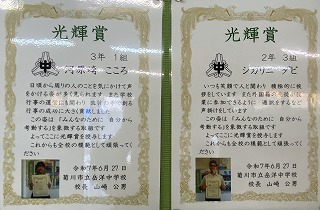 光輝賞
3年 1組
河原﨑 こころ
日頃から周りの人のことを気にかけて声
をかける姿が多く見られます また学校
行事の運営にも関わり
行事の成功に大きく貢献しました
この姿は「みんなのために 自分から
考動する」を象徴する取組です
よってここに光輝賞を授与します
これからも全校の模範として頑張ってく
ださい
令和7年6月27日
菊川市立岳洋中学校
校長 山崎 公男
光輝賞
2年 3組
ジカリニ ケビ
いつも笑顔で人と関わり 積極的に挨
拶をしています また外国籍の生徒が授
業に参加できるように 通訳をするなど
声掛けをしています
この姿は「みんなのために 自分から
考動する」を象徴する取組です
よってここに光輝賞を授与します
これからも全校の模範として頑張ってく
ださい
令和7年6月27日
菊川市立岳洋中学校
校長 山崎 公男